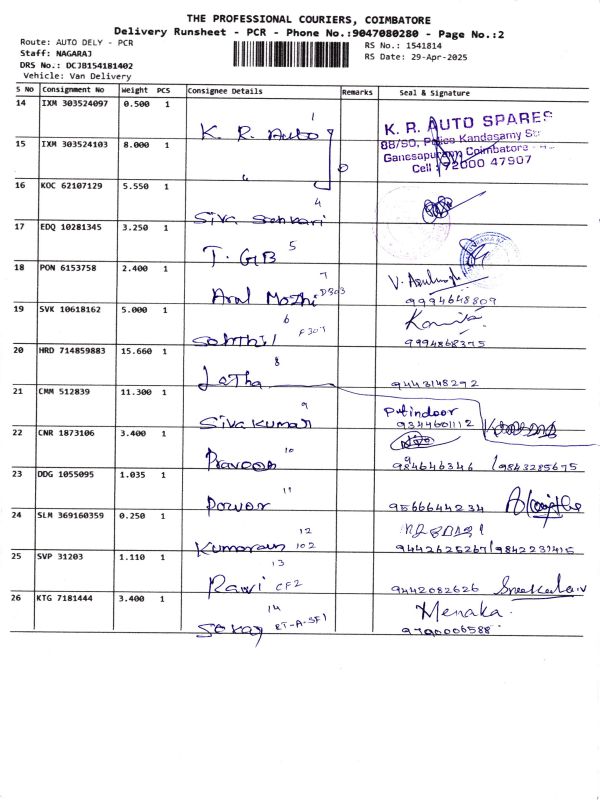 THE PROFESSIONAL COURIERS, COIMBATORE
Delivery Runsheet - PCR - Phone No.:9047080280 - Page No.:2
Route: AUTO DELY - PCR
Staff: NAGARAJ
DRS No.: DCJB154181402
Vehicle: Van Delivery
RS No.: 1541814
RS Date: 29-Apr-2025
S No Consignment No Weight PCS Consignee Details Remarks Seal & Signature
14 IXM 303524097 0.500 1 K. R. Auto 1
K. R. AUTO SPARES
88/90, Police Kandasamy
Ganesapuram, Coimbatore
Cell : 72000 47907
15 IXM 303524103 8.000 1
16 KOC 62107129 5.550 1 Siva Sankari 4
17 EDQ 10281345 3.250 1 T. GB 5
18 PON 6153758 2.400 1 Arul Mozhi D303 7 9994648809
19 SVK 10618162 5.000 1 6 9994868375
20 HRD 714859883 15.660 1 Latha 8 9443148292
21 CMM 512839 11.300 1 Sivakumar 9 9344601112
22 CNR 1873106 3.400 1 Praveen 10 9843285675
23 DDG 1055095 1.035 1 Power 11 9566644234
24 SLM 369160359 0.250 1 Kumaran 102 12 9442625267
25 SVP 31203 1.110 1 Ravi CF2 13 9442082626
26 KTG 7181444 3.400 1 14 Menaka 9790006588